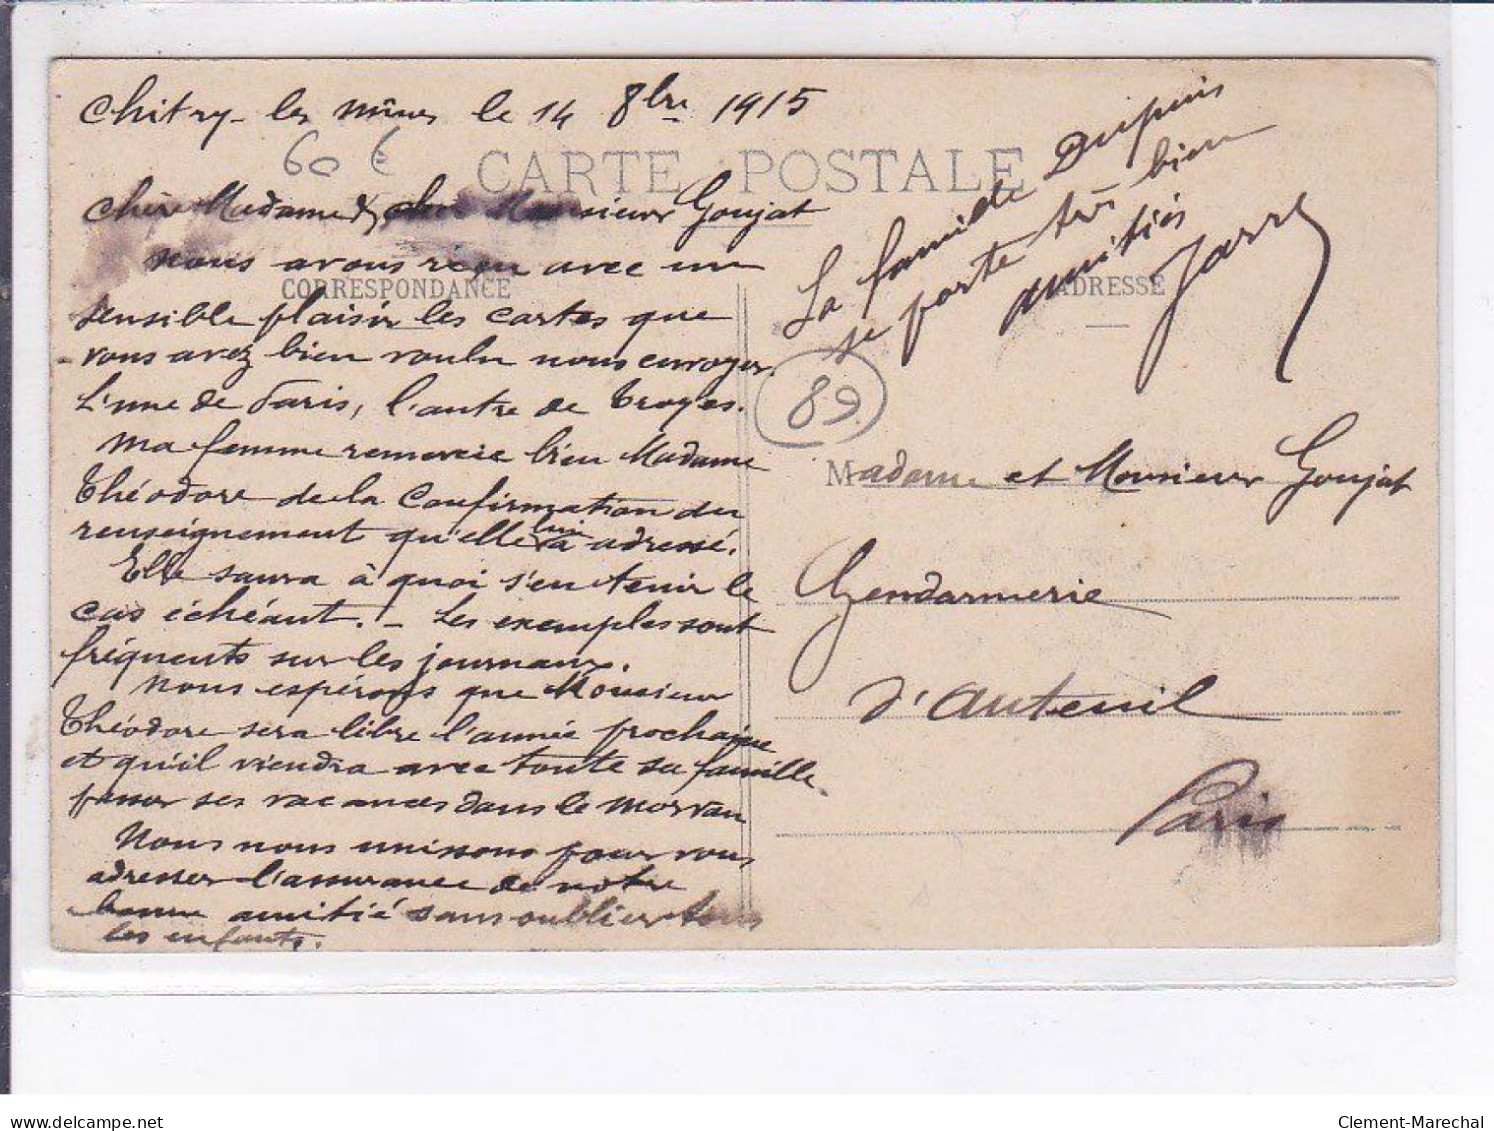 Chitry-les Mines le 14 8bre 1915
60 €
CARTE POSTALE
Chère Madame & cher Monsieur Goujat
Nous avons reçu avec un
CORRESPONDANCE
sensible plaisir les cartes que
vous avez bien voulu nous envoyer.
L'une de Paris, l'autre de Troyes.
Ma femme remercie bien Madame
Théodore de la confirmation du
renseignement qu'elle lui a adressé.
Elle saura à quoi s'en tenir le
cas échéant. - Les exemples sont
fréquents sur les journaux.
Nous espérons que Monsieur
Théodore sera libre l'année prochaine
et qu'il viendra avec toute sa famille
passer ses vacances dans le Morvan
Nous nous unissons pour vous
adresser l'assurance de notre
bonne amitié sans oublier tous
les enfants.
La famille Dupuis
se porte très bien
amitiés
Jarry
ADRESSE
89
Madame et Monsieur Goujat
Gendarmerie
d'Auteuil
Paris
delcampe.net
Clement-Marechal